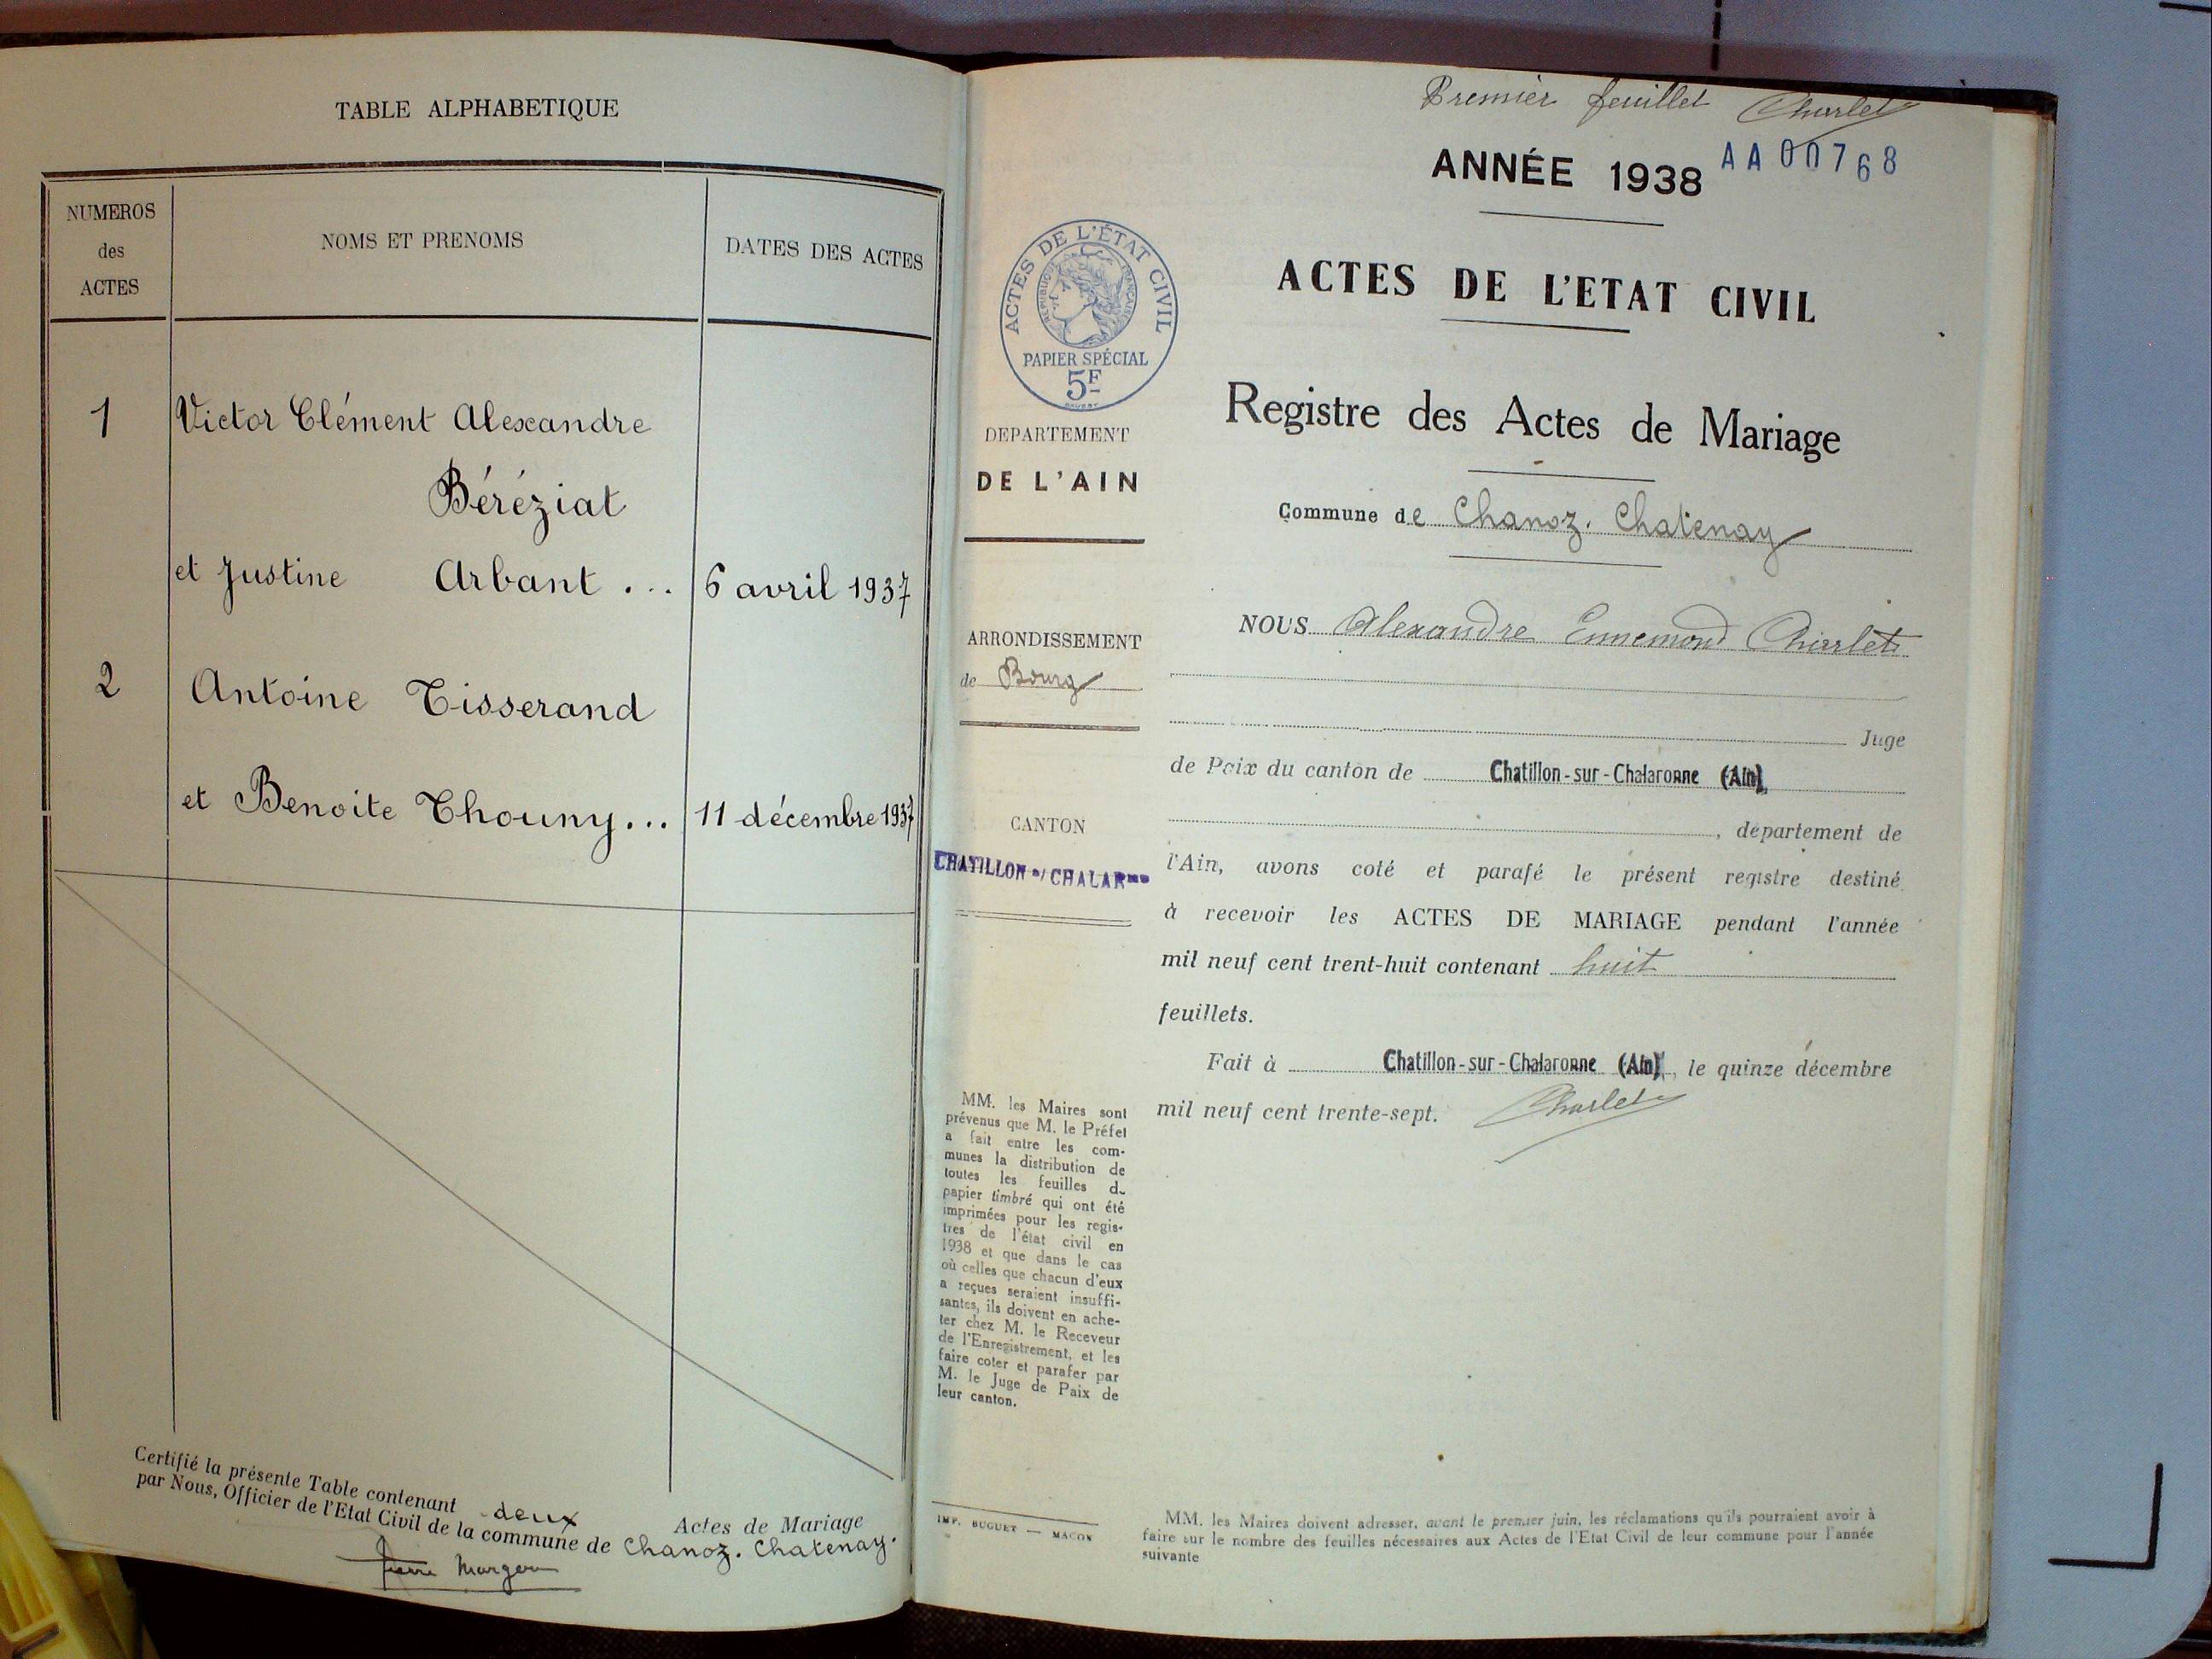 TABLE ALPHABETIQUE
NUMEROS
des
ACTES
NOMS ET PRENOMS
DATES DES ACTES
1
Victor Clément Alexandre
Béréziat
et Justine Arbant ... 6 avril 1937
2
Antoine Tisserand
et Benoite Thouny... 11 décembre 1937
Certifié la présente Table contenant deux Actes de Mariage
par Nous, Officier de l'Etat Civil de la commune de Chanoz. Chatenay.
Pierre
Premier feuillet Charlet
ANNÉE 1938 AA00768
ACTES DE L'ÉTAT CIVIL
RÉPUBLIQUE FRANÇAISE
PAPIER SPÉCIAL
5F
ACTES DE L'ETAT CIVIL
Registre des Actes de Mariage
DEPARTEMENT
DE L'AIN
Commune de Chanoz. Chatenay
ARRONDISSEMENT
de Bourg
CANTON
CHATILLON s/ CHALARnne
NOUS Alexandre Ennemond Charlet
Juge
de Paix du canton de Chatillon-sur-Chalaronne (Ain)
, département de
l'Ain, avons coté et parafé le présent registre destiné
à recevoir les ACTES DE MARIAGE pendant l'année
mil neuf cent trent-huit contenant huit
feuillets.
Fait à Chatillon-sur-Chalaronne (Ain), le quinze décembre
mil neuf cent trente-sept. Charlet
MM. les Maires sont
prévenus que M. le Préfet
a fait entre les com-
munes la distribution de
toutes les feuilles du
papier timbré qui ont été
imprimées pour les regis-
tres de l'état civil en
1938 et que dans le cas
où celles que chacun d'eux
a reçues seraient insuffi-
santes, ils doivent en ache-
ter chez M. le Receveur
de l'Enregistrement, et les
faire coter et parafer par
M. le Juge de Paix de
leur canton.
IMP. BUGUET — MACON
MM. les Maires doivent adresser, avant le premier juin, les réclamations qu'ils pourraient avoir à
faire sur le nombre des feuilles nécessaires aux Actes de l'Etat Civil de leur commune pour l'année
suivante